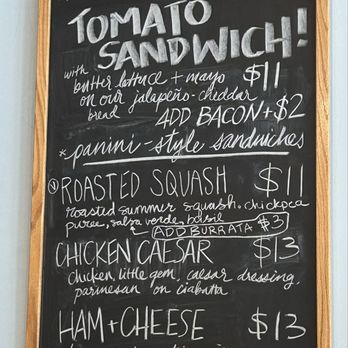 TOMATO
SANDWICH!
with
butter lettuce + mayo $11
on our jalapeño-cheddar
bread
ADD BACON +$2
*panini-style sandwiches
(V) ROASTED SQUASH $11
roasted summer squash, chickpea
puree, salsa verde, basil
ADD BURRATA $3
CHICKEN CAESAR $13
chicken, little gem, caesar dressing,
parmesan on ciabatta
HAM + CHEESE $13